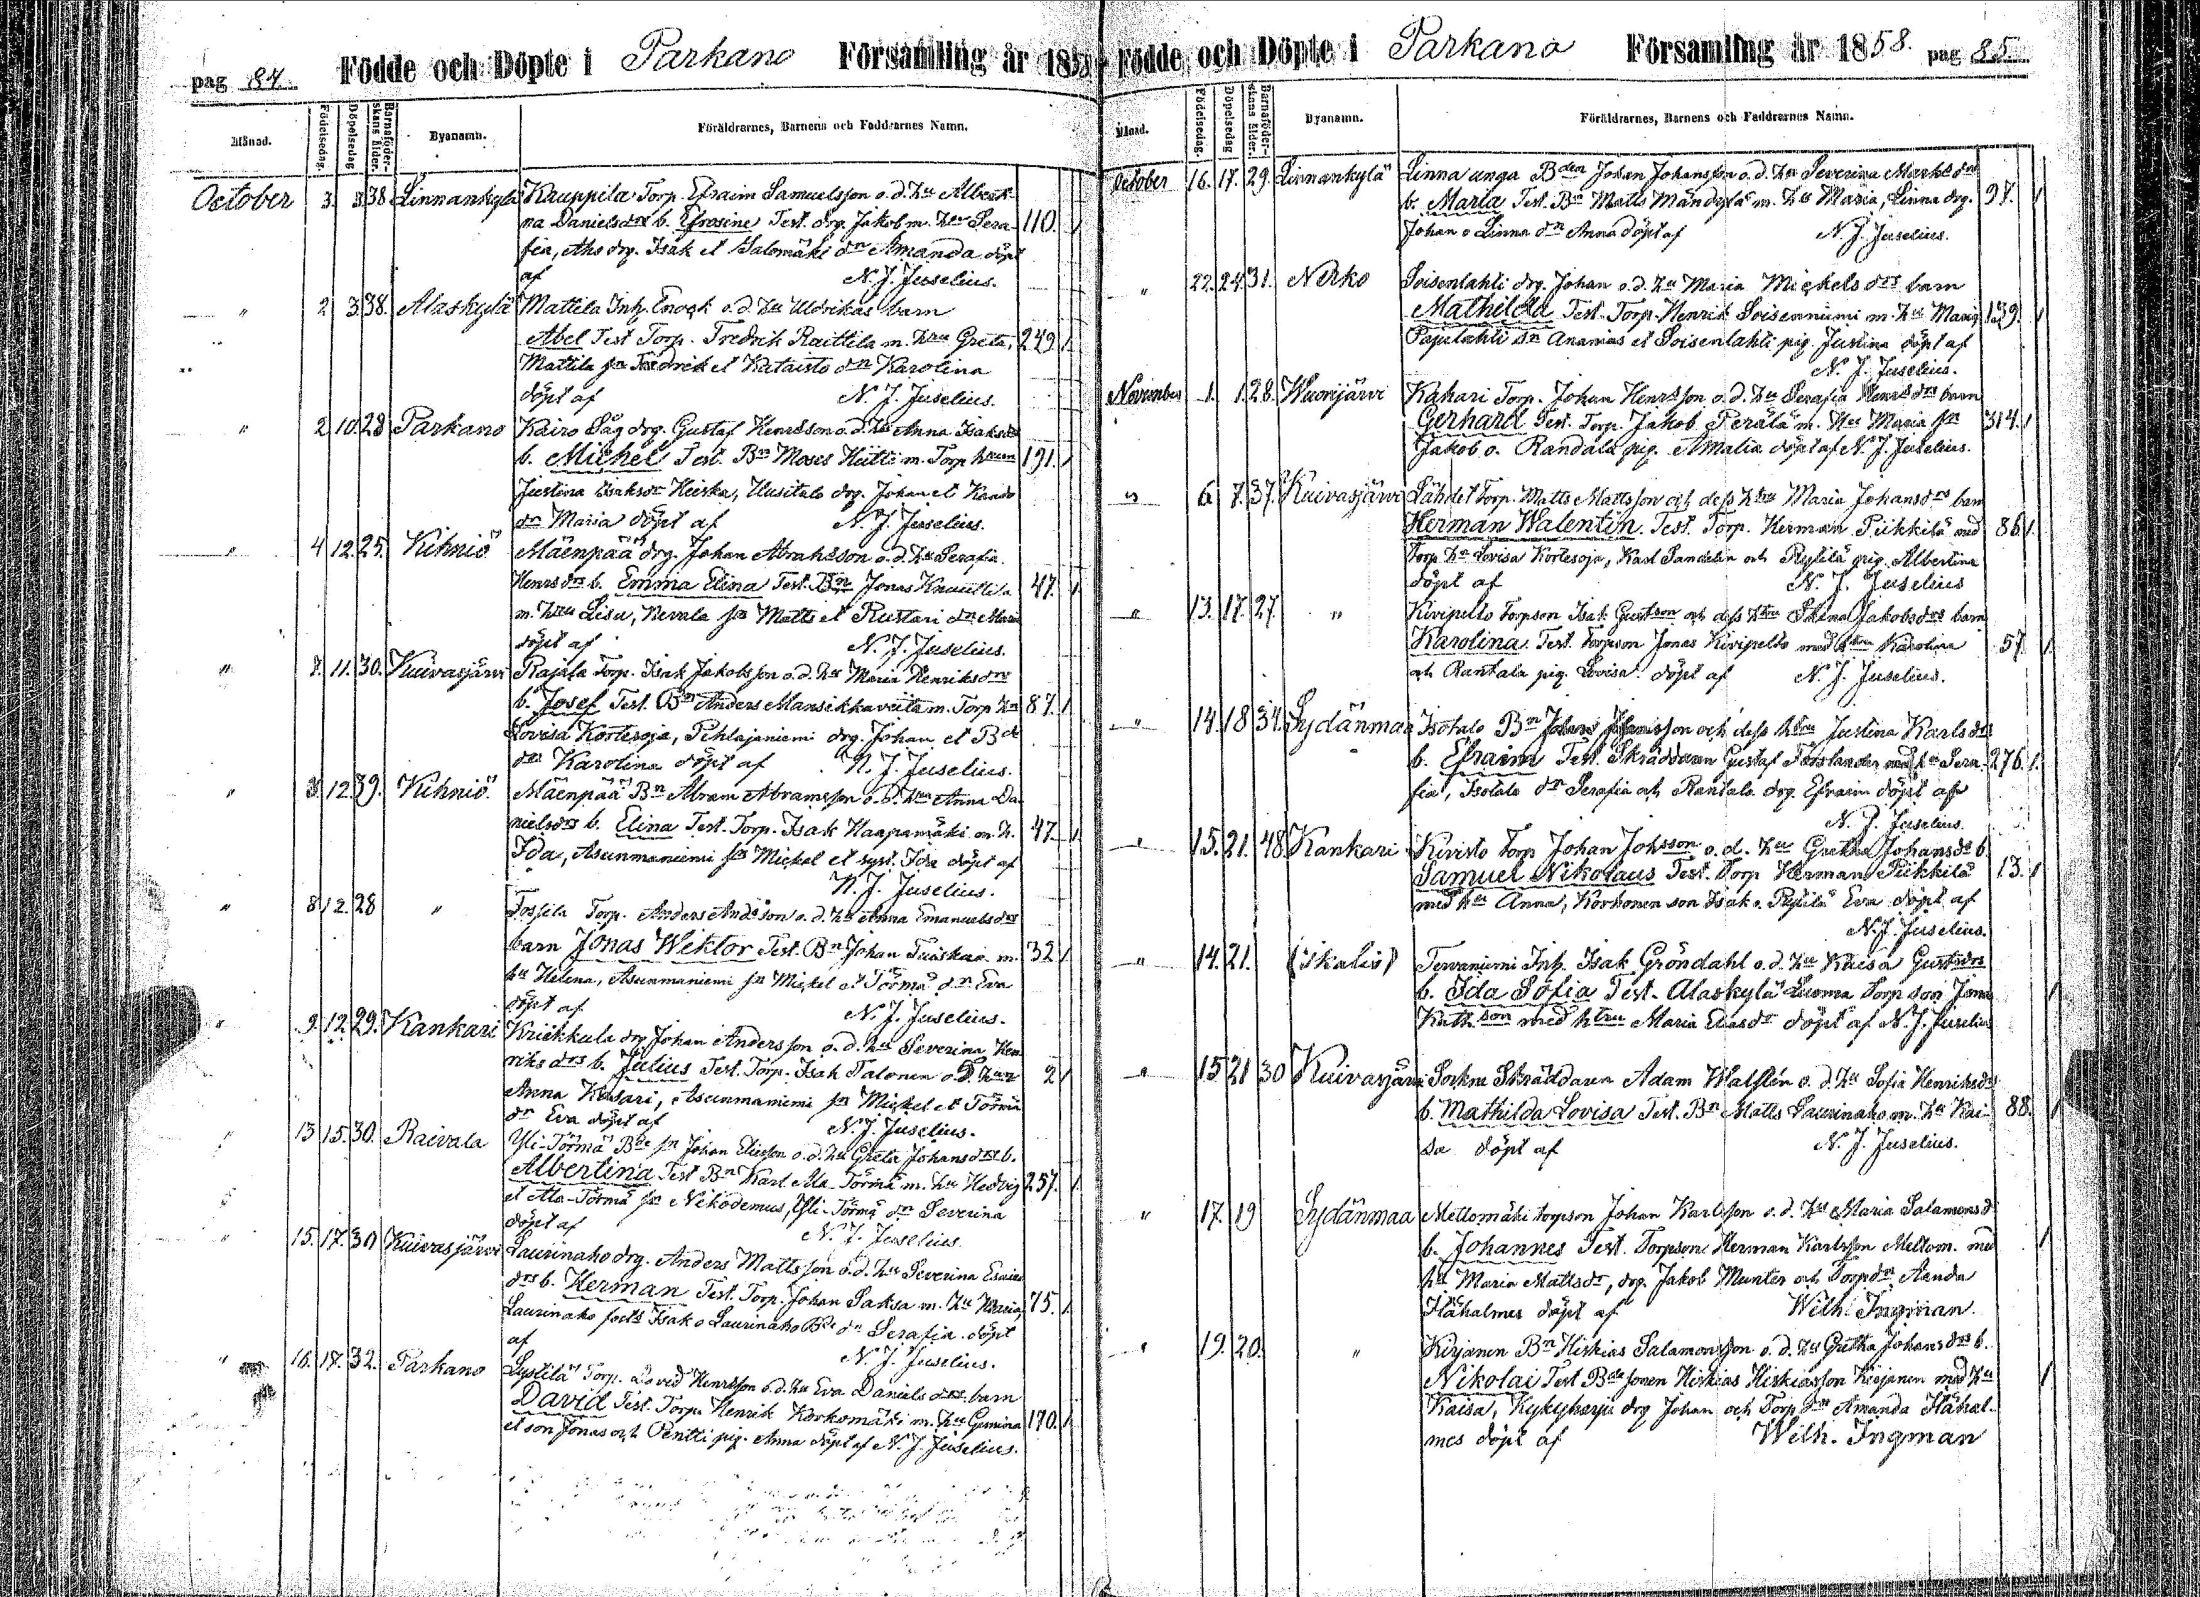 pag 84.
Födde och Döpte i Parkano Församling år 1858
Månad.
Födelsedag.
Döpelsedag
Barnaföderskans ålder.
Byanamn.
Föräldrarnes, Barnens och Faddrarnes Namn.
October 3. 3 38 Linnankylä Kauppila Torp. Efraim Samuelsson o. d. hu Albert-
na Danielsdr b. Efrosine Test. drg. Jakob m. hu Sera- 110.
fia, Aho drg. Isak et Salomäki dr Amanda döpt
af N. J. Juselius.
" 2 3 38. Alaskylä Mattila Inh. Enock o. d. hu Uldrikas barn
Abel Test Torp. Fredrik Raittila m. hru Greta, 249
Mattila sn Fredrik et Kataisto dr Karolina
döpt af N. J. Juselius.
" 2 10 28 Parkano Kairo Såg drg. Gustaf Henrsson o. d. hu Anna Isaksdr
b. Michel Test. Bn Moses Hutti m. Torp hrun 191.
Justina Isaksdr Heiska, Uusitalo drg. Johan et
dr Maria döpt af N. J. Juselius.
" 4 12. 25. Kihniö Mäenpää drg. Johan Abrahsson o. d. hu Serafia
Henrsdr b. Emma Elina Test. Bn Jonas Knuuttila 47.
m. hru Lisu, Nevala sn Matts et Rustari dr Maria
döpt af N. J. Juselius.
" 7. 11. 30. Kuivasjärvi Rajala Torp. Isak Jakobsson o. d. hu Maria Henriksdr
b. Josef Test. Bn Anders Mansikkaviita m. Torp hu 87.
Lovisa Kortesoja, Pihlajaniemi drg. Johan et Bde
dr Karolina döpt af N. J. Juselius.
" 3. 12 39. Kihniö. Mäenpää Bn Abram Abramsson o. d. hu Anna Da-
nielsdr b. Elina Test. Torp. Isak Haapamäki m. h. 47.
Ida, Asunmaniemi sn Mickel et syst. Ida döpt af
N. J. Juselius.
" 8 12. 28 " Torp. Anders Andsson o. d. hu Anna Emanuelsdr
barn Jonas Wektor Test. Bn Johan Tuiskar m. 32
hu Helena, Asunmaniemi sn Mickel et Törmä dr Eva
döpt af N. J. Juselius.
" 9. 12. 29. Kankari Kriikkula drg Johan Andersson o. d. hu Severina Hen-
riksdr b. Julius Test. Torp. Isak Talonen o. d. hu 2
Anna Kusari, Asunmaniemi sn Mickel et Törmä
dr Eva döpt af N. J. Juselius.
" 13 15. 30. Raivala Yli-Törmä Bde sn Johan Eliasson o. d. hu Greta Johansdr b.
Albertina Test Bn Karl Ala-Törmä m. hu Hedvig 257.
et Ala-Törmä sn Nikodemus, Yli-Törmä dr Severina
döpt af N. J. Juselius.
" 15. 17. 30 Kuivasjärvi Laurinaho drg. Anders Mattsson o. d. hu Severina Esaias
dr b. Herman Test. Torp. Johan Saksa m. hu Maria, 75.
Laurinaho Isak o Laurinaho Bde dr Serafia döpt
af N. J. Juselius.
" 16. 17. 32. Parkano Lystilä Torp. David Henrsson o. d. hu Eva Danielsdr barn
David Test. Torp. Henrik Korkomäki m. hu Gemina 170.
et son Jonas och Pentti pig. Anna döpt af N. J. Juselius.
Födde och Döpte i Parkano Församling år 1858. pag 85.
Månad.
Födelsedag.
Döpelsedag
Barnaföderskans ålder.
Byanamn.
Föräldrarnes, Barnens och Faddrarnes Namn.
October 16. 17. 29. Linnankylä Linna unga Bden Johan Johansson o. d. hu Severina Marksdr
b. Maria Test. Bn Matts Mändylä m. hu Maria, Linna drg. 97.
Johan o Linna dr Anna döpt af N. J. Juselius.
" 22. 24 31. Nerko Soisenlahti drg. Johan o. d. hu Maria Mickelsdr barn
Mathilda Test. Torp. Henrik Soisenniemi m. hu Maria 139.
Papilahti sn Ananias et Soisenlahti pig. Justina döpt af
N. J. Juselius.
November 1. 1. 28. Wuorijärvi Kahari Torp. Johan Henrsson o. d. hu Serafia Henrsdr barn
Gerhard Test. Torp. Jakob Perälä m. hu Maria sn 314.
Jakob o. Randala pig. Amalia döpt af N. J. Juselius.
" 6 7. 37. Kuivasjärvi Lähdet Torp. Matts Mattsson och dess hru Maria Johansdr barn
Herman Walentin. Test. Torp. Herman Piikkilä med 86.
Torp. hu Lovisa Kortesoja, Karl Sandelin och Rytilä pig. Albertina
döpt af N. J. Juselius
" 13. 17. 27. " Kivipelto Torpson Isak Gustson och dess hru Stina Jakobsdr barn
Karolina. Test. torpson Jonas Kivipelto med hru Karolina 57
och Rantala pig. Lovisa döpt af N. J. Juselius.
" 14 18 34. Sydänmaa Isotalo Bn Johan Johansson och dess hru Justina Karlsdr
b. Efraim Test. Skräddaren Gustaf Forslander med hu Sera- 276.
fia, Isotalo dr Serafia och Rantala drg. Efraim döpt af
N. J. Juselius.
" 15. 21. 48. Kankari Kivisto Torp Johan Johsson o. d. hu Gretha Johansdr b.
Samuel Nikolaus Test. Torp Herman Piikkilä 13.
med hu Anna, Korhonen son Isak o. Rytilä Eva döpt af
N. J. Juselius.
" 14. 21. (Ikalis) Tervaniemi Inh. Isak Gröndahl o. d. hu Kaesa Gustsdr
b. Ida Sofia Test. Alaskylä Luoma Torp son Jona
son med htru Maria Eliasdr döpt af N. J. Juselius
" 15 21 30 Kuivasjärvi Sockne Skräddaren Adam Walstén o. d. hu Sofia Henriksdr
b. Mathilda Lovisa Test. Bn Matts Laurinaho m. hu Kai- 88.
sa döpt af N. J. Juselius.
" 17. 19 Sydänmaa Mettomäki torpson Johan Karlsson o. d. hu Maria Salamonsd
b. Johannes Test. Torpson Herman Karlsson Mettom. med
hu Maria Mattsdr, drg. Jakob Munter och Torpdr Aanda
Hähalmes döpt af Wilh. Ingman.
" 19. 20. " Kirjanen Bn Hiskias Salamonsson o. d. hu Gretha Johansdr b.
Nikolai Test Bdesonen Hiskias Hiskiasson Kirjanen med hu
Kaisa, Kykyharju drg Johan och Torp dr Amanda Hähal-
mes döpt af Wilh. Ingman